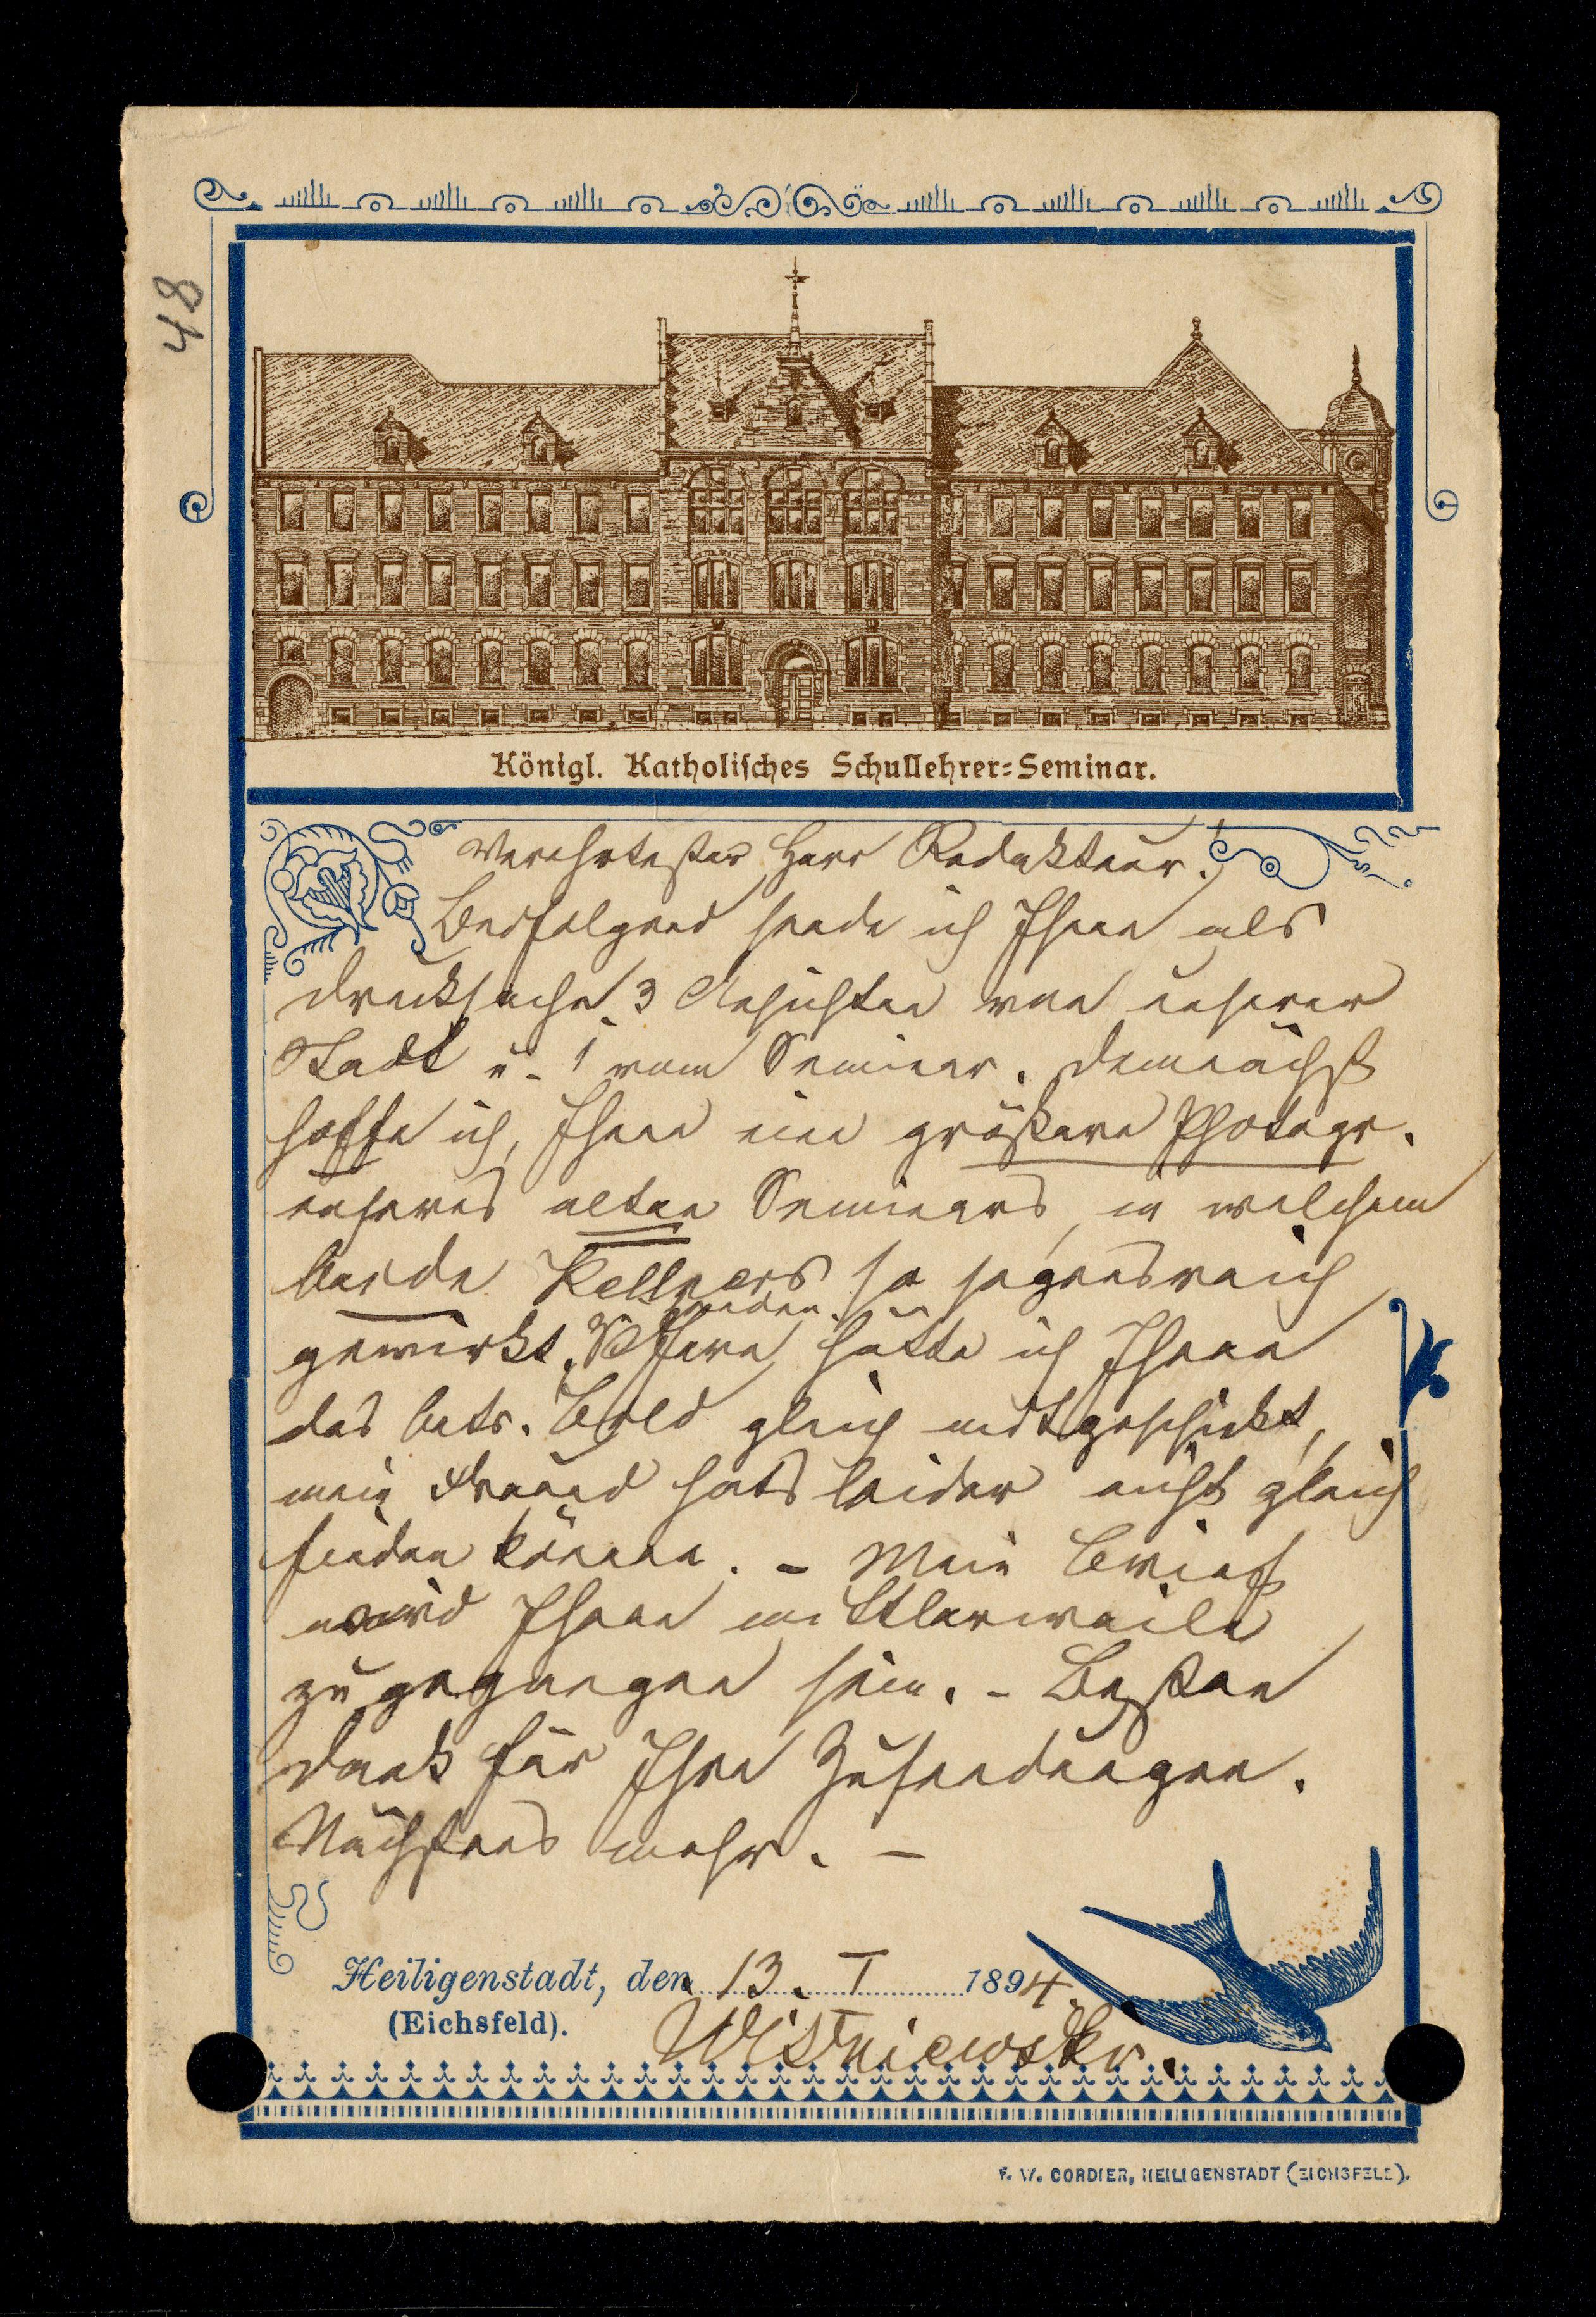 48
Königl. Katholisches Schullehrer-Seminar.
Verehrtester Herr Redakteur!
Beifolgend sende ich Ihnen als
Drucksache 3 Ansichten von unserer
Stadt u. 1 vom Seminar. Demnächst
hoffe ich, Ihnen eine größere Photogr.
unseres alten Seminars, in welchem
beide Kellners so segensreich
gewirkt, senden. hätte ich Ihnen
das betr. Bild gleich mitgeschickt,
mein Freund hats leider nicht gleich
finden können. - Mein Brief
wird Ihnen mittlerweile
zugegangen sein. - Besten
Dank für Ihre Zusendungen.
Nächstens mehr. -
Heiligenstadt, den 13. I 1894.
(Eichsfeld).
Wistniewski.
F. W. CORDIER, HEILIGENSTADT (EICHSFELD).